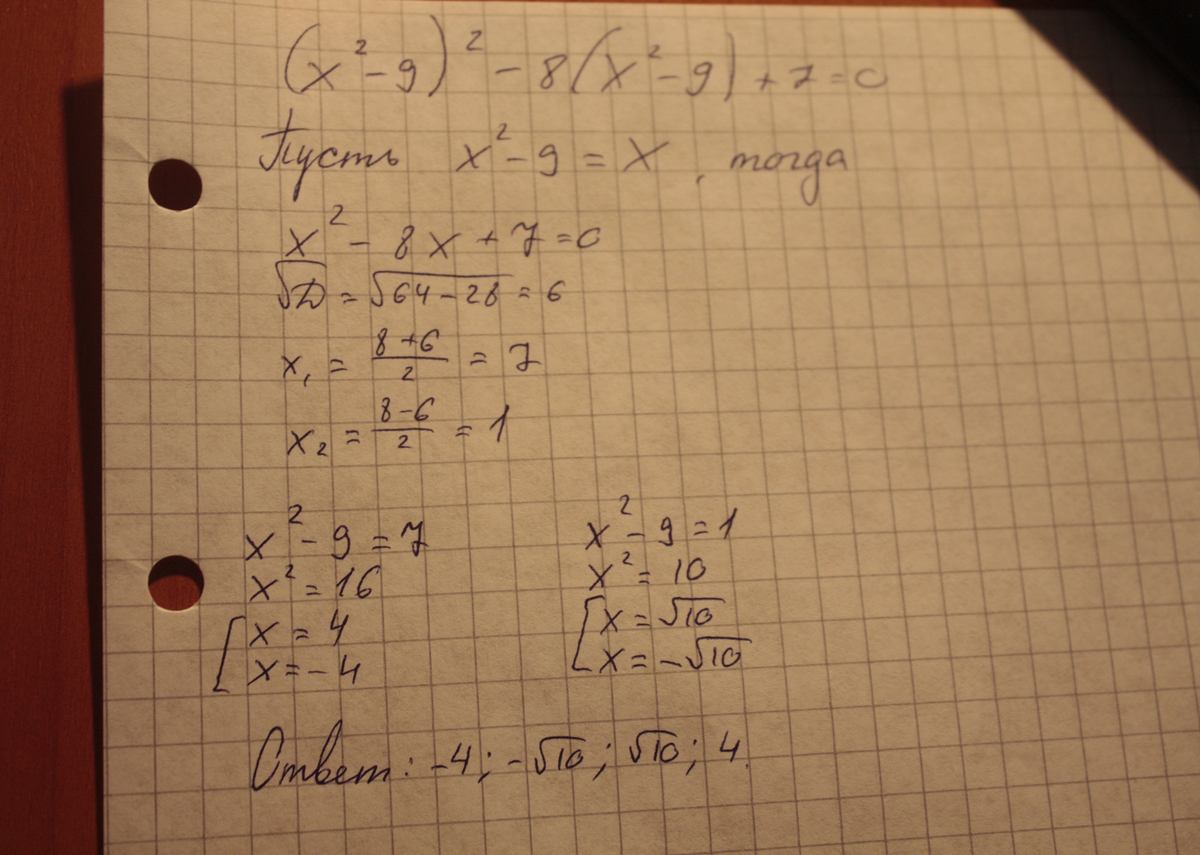 (x² - 9)² - 8(x² - 9) + 7 = 0
Пусть x² - 9 = X, тогда
X² - 8X + 7 = 0
√D = √64 - 28 = 6
x₁ = (8 + 6)/2 = 7
x₂ = (8 - 6)/2 = 1
x² - 9 = 7
x² = 16
[x = 4
x = -4
x² - 9 = 1
x² = 10
[x = √10
x = -√10
Ответ: -4; -√10; √10; 4.